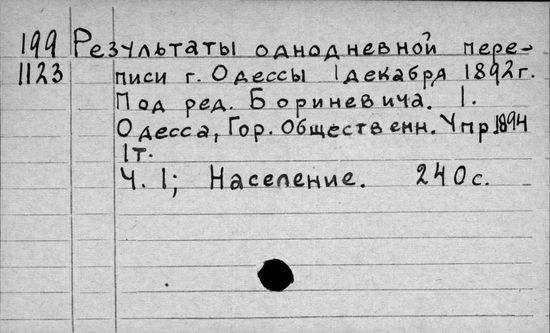 199 Результаты однодневной пере-
1123 писи г. Одессы 1 декабря 1892 г.
Под ред. Бориневича. 1.
Одесса, Гор. Общественн. Упр 1894
1т.
Ч. 1; Население. 240 с.